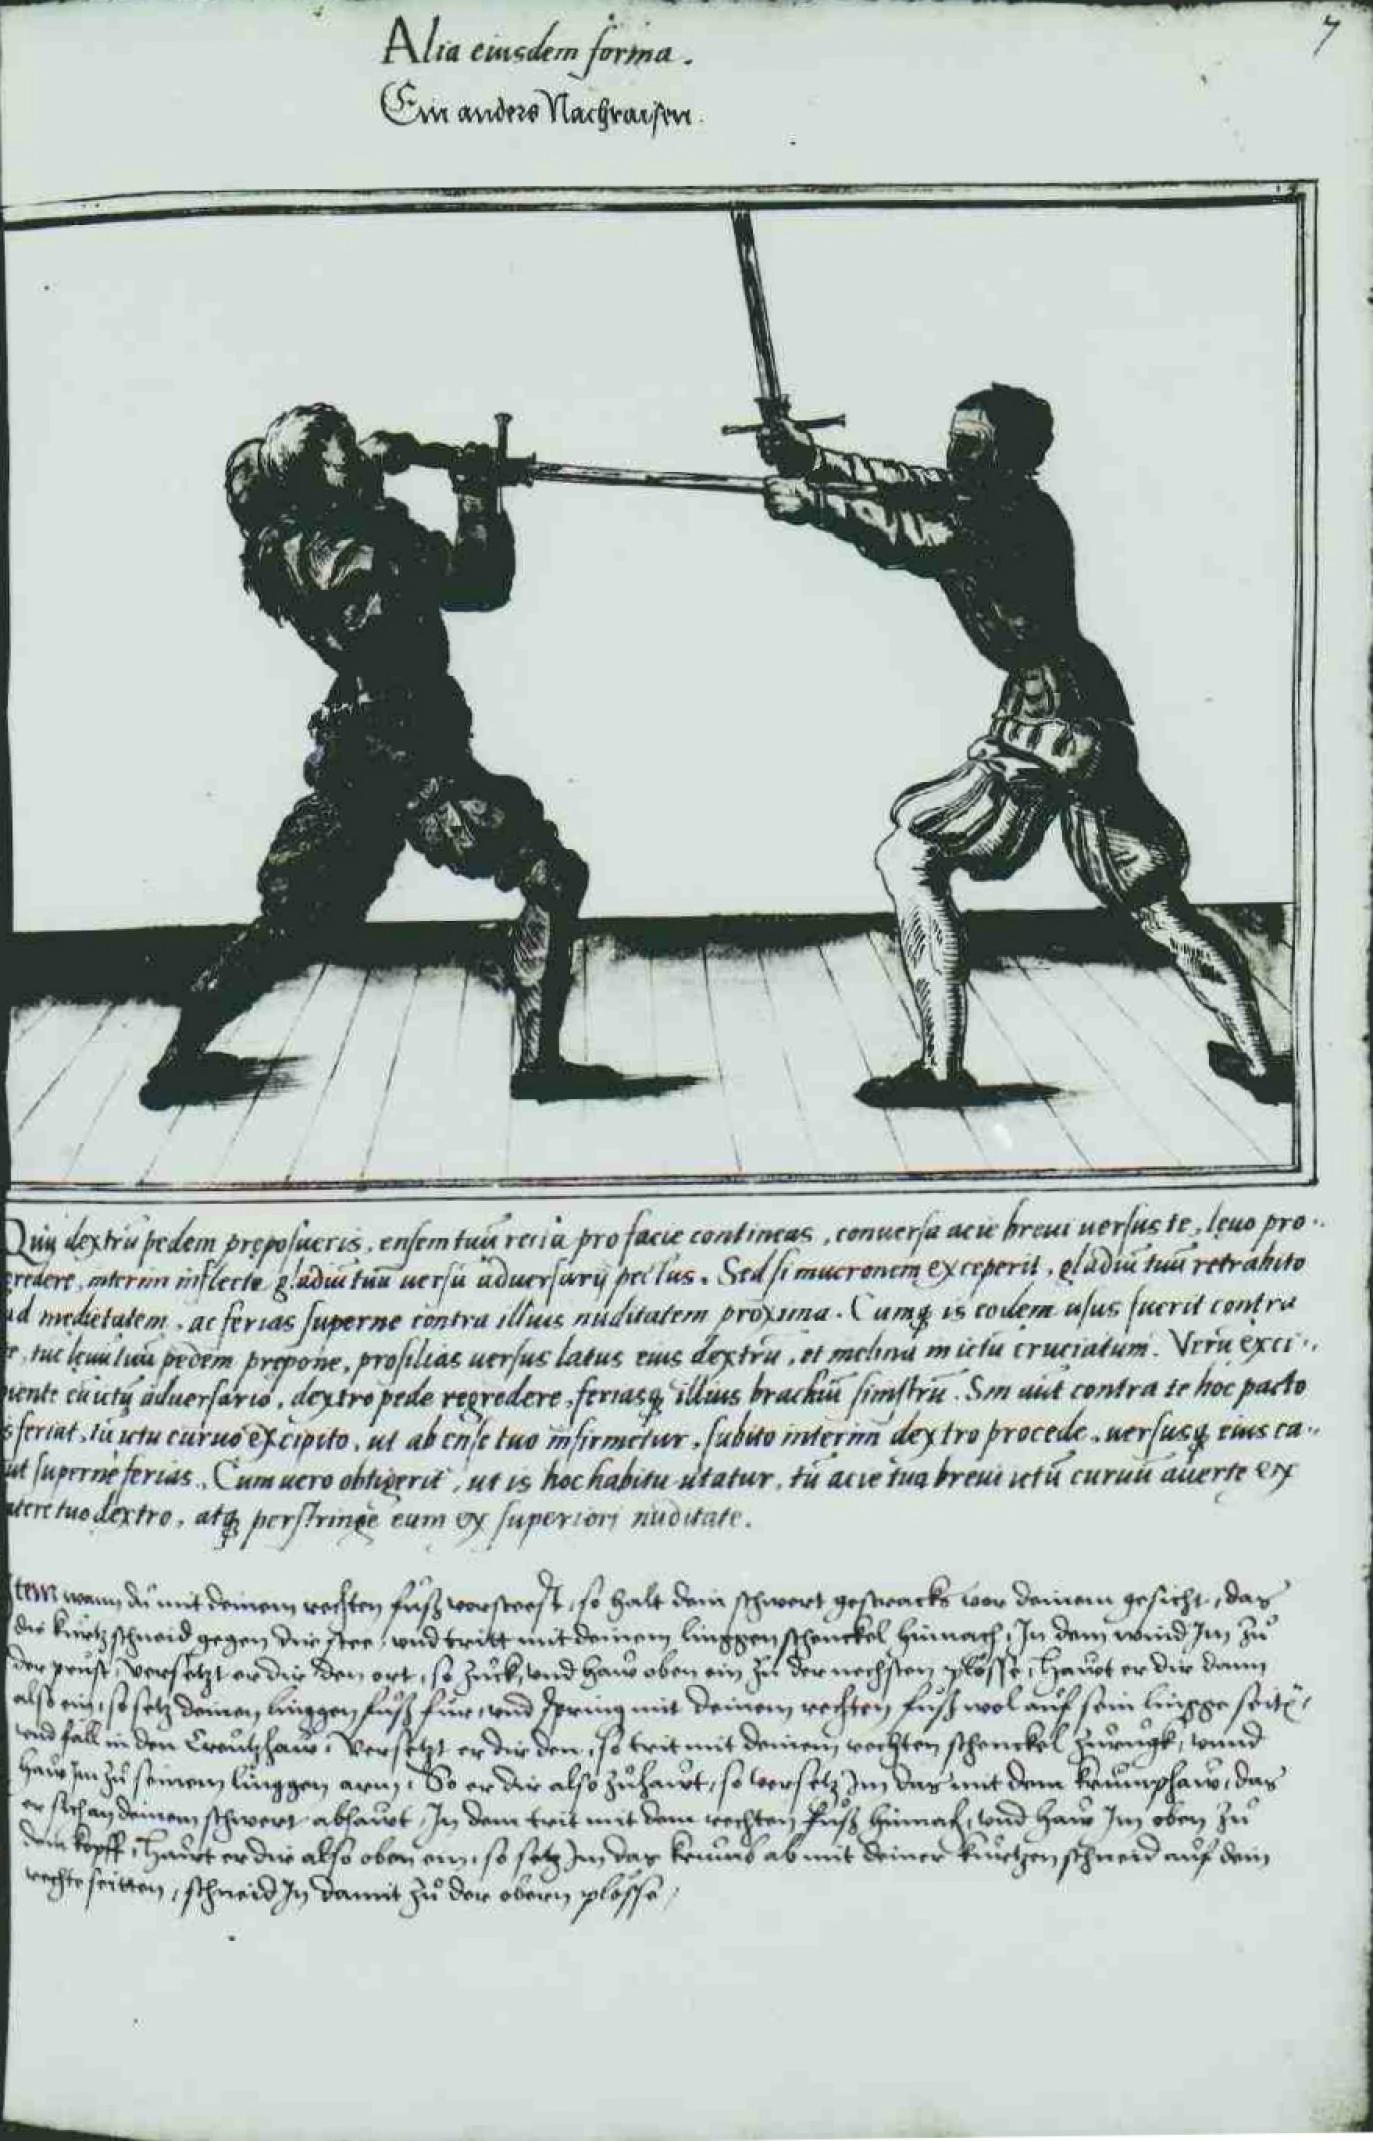 7
Alia eiusdem forma.
Ein anders Nachraisen.
Quũ dextrũ pedem pręposueris, ensem tuũ recta pro facie contineas, conuersa acie breui uersus te, leuo pro-
gredere, interim inflecte gladiũ tuũ uersũ aduersarij pectus. Sed si mucronem exceperit, gladiũ tuũ retrahito
ad medietatem, ac ferias superne contra illius nuditatem proxima. Cumq is eodem usus fuerit contra
te, tuc leuũ tuũ pedem prępone, prosilias uersus latus eius dextrũ, et inclina in ictũ cruciatum. Verũ exci-
piente eũ ictũ aduersario, dextro pede regredere, feriasq illius brachiũ sinistrũ. Sin aũt contra te hoc pacto
is feriat, tu ictu curuo excipito, ut ab ense tuo infirmetur, subito interim dextro procede, uersusq eius ca-
put superne ferias. Cum uero obtigerit, ut is hoc habitu utatur, tu acie tua breui ictũ curuũ auerte ex
latere tuo dextro, atq perstringe eum ex superiori nuditate.
Item wann dů mit deinem rechten fůß vorsteest, so halt dein schwert gestracks vor deinem gesicht, das
die kurtz schneid gegen dir stee, vnd tritt mit deinem linggen schenckel hinnach, In dem wind Im zů
der prust, versetzt er dir den ort, so zuck, vnd haw oben ein zů der nechsten plösse, hawt er dir dann
also ein, so setz deinen linggen fůß fůr, vnd spring mit deinem rechten fůß wol auf sein lingge seitñ,
vnd fall in den Creutzhaw, versetzt er dir den, so trit mit deinem rechten schenckel zurugk, vnnd
haw Im zů seinem linggen arm, So er dir also zůhawt, so versetz Im das mit dem krumphaw, das
er sich an deinem schwert abhawt, In dem trit mit dem rechten fůß hinnach, vnd haw Im oben zů
dem kopff, hawt er dir also oben ein, so setz Im das krumb ab mit deiner kurtzen schneid auf dein
rechte seitten, schneid In damit zů der obern plösse,